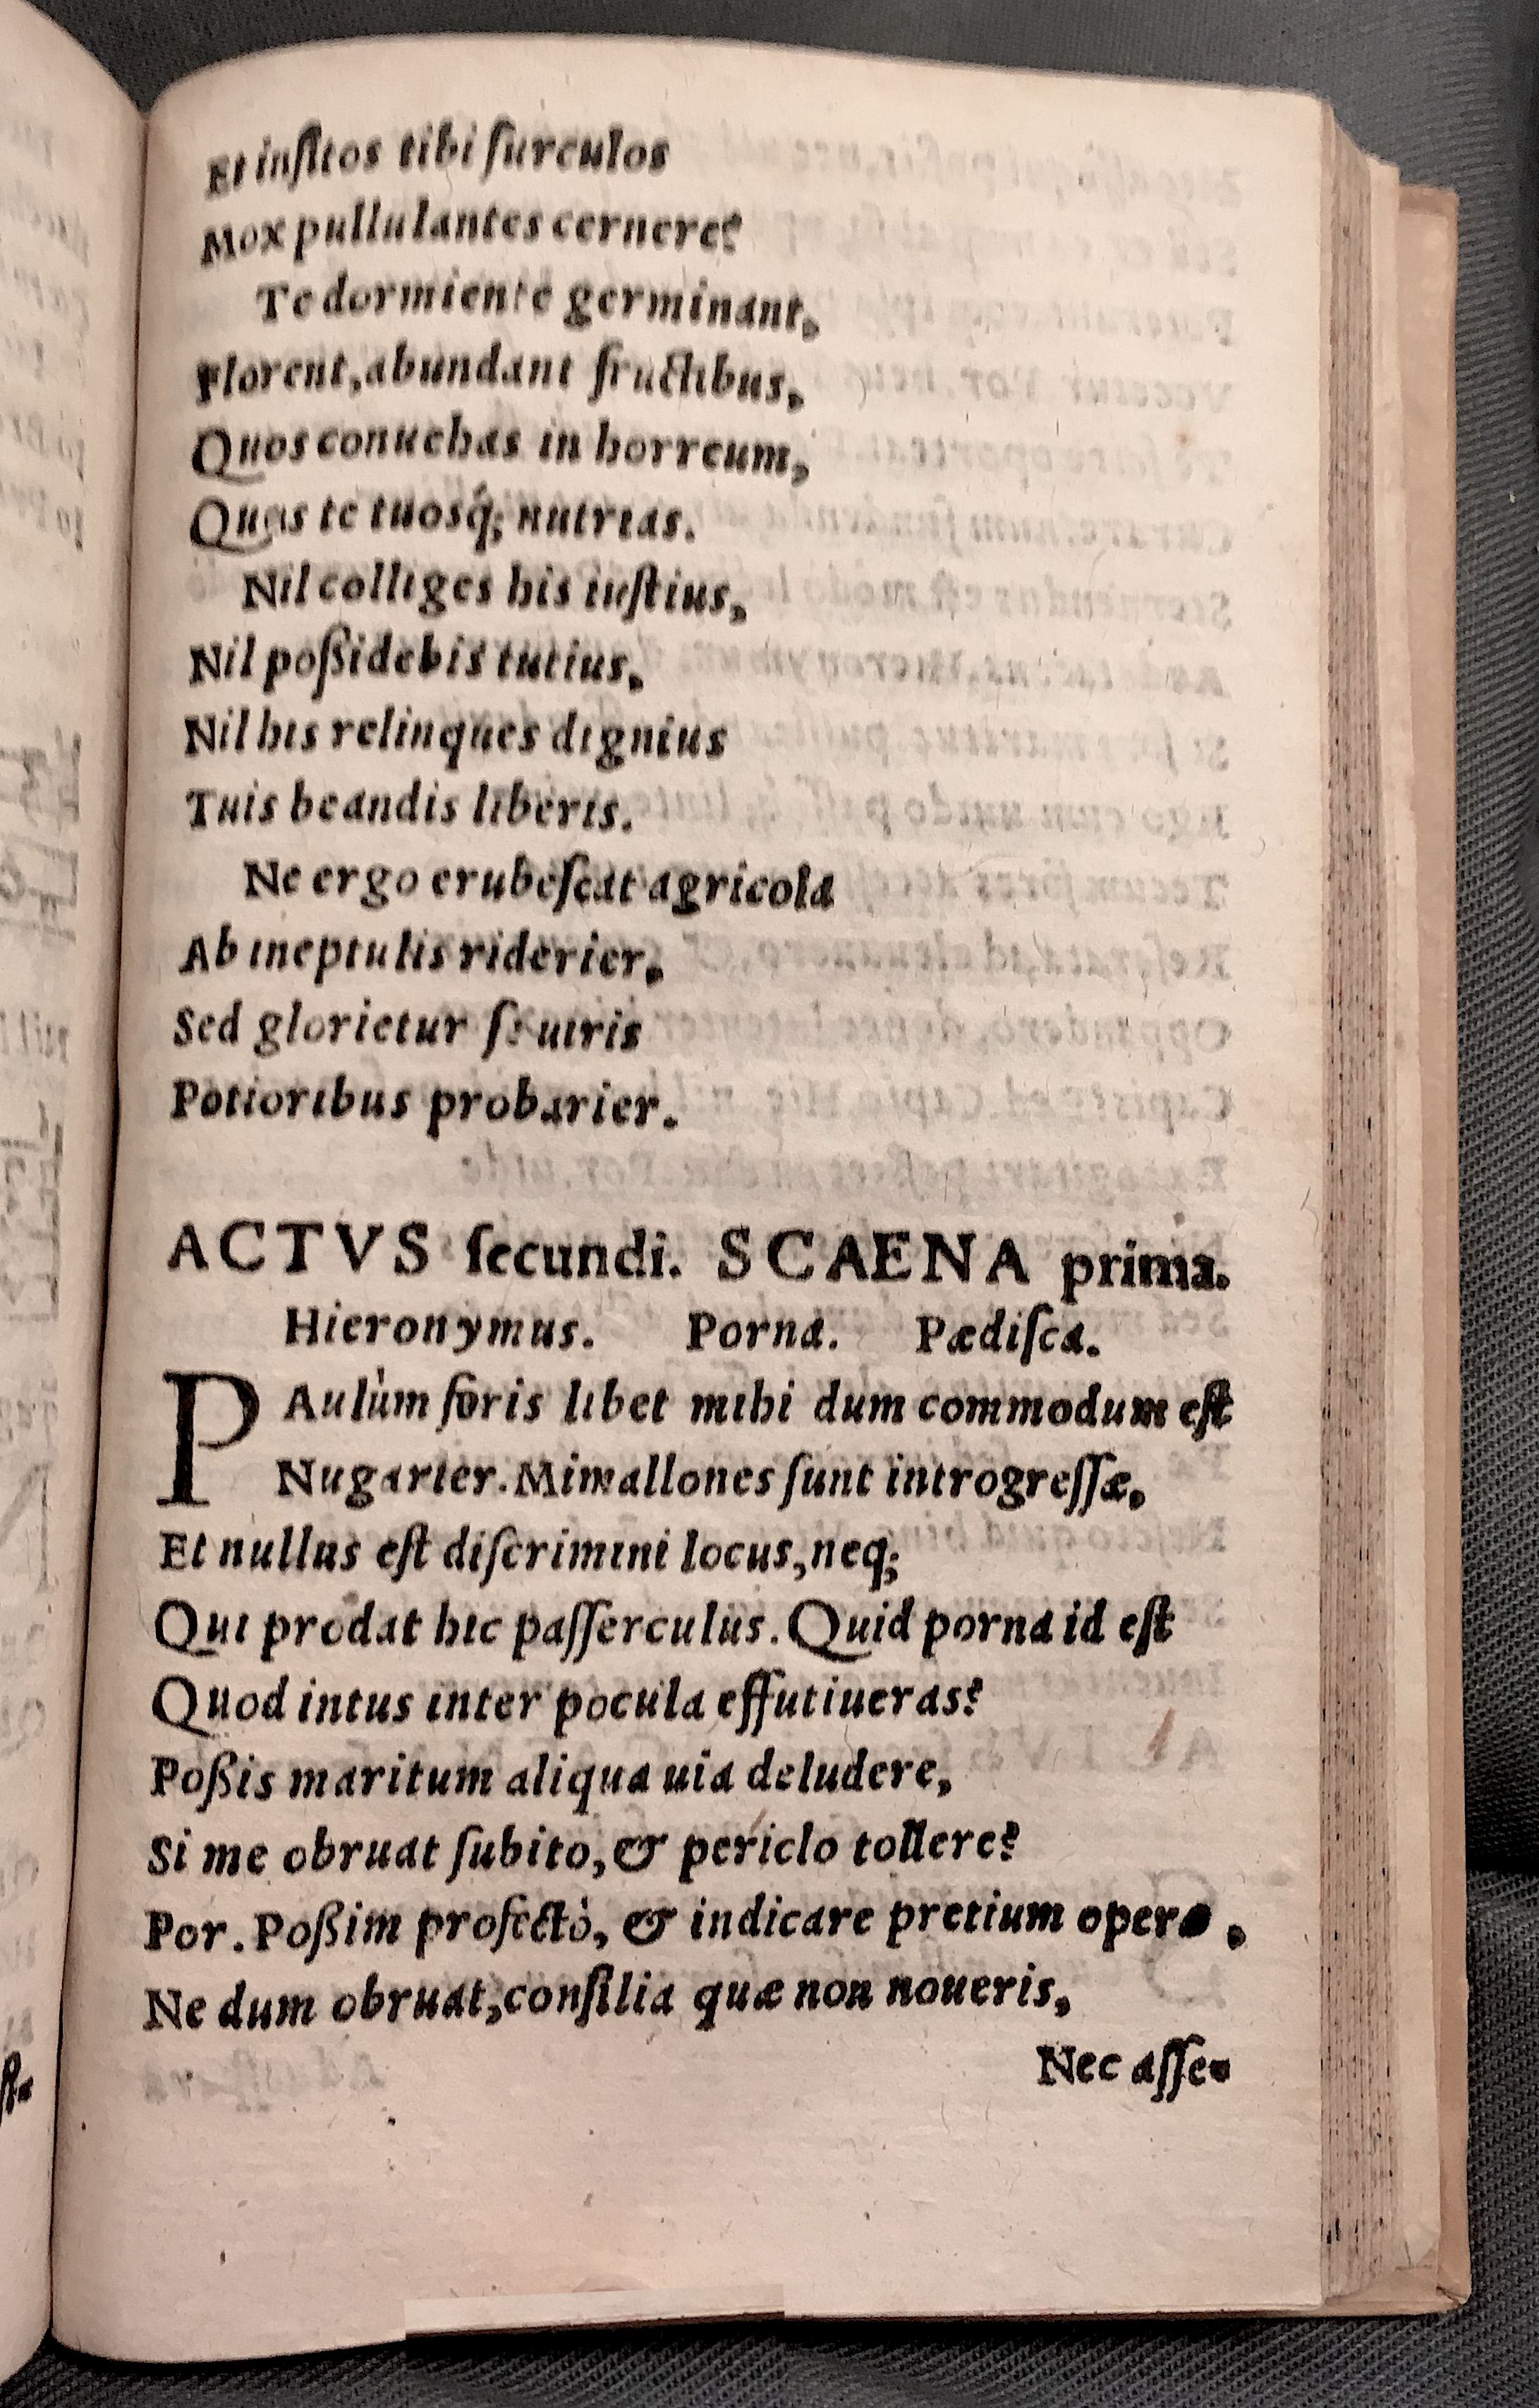 Et inſitos tibi ſurculos
Mox pullulantes cernere?
Te dormiente germinant,
Florent, abundant fructibus,
Quos conuehas in horreum,
Queis te tuosq́; nutrias.
Nil colliges his iuſtius,
Nil poßidebis tutius,
Nil his relinques dignius
Tuis beandis liberis.
Ne ergo erubeſcat agricola
Ab ineptulis riderier,
Sed glorietur ſe uiris
Potioribus probarier.
ACTVS ſecundi. SCAENA prima.
Hieronymus. Porna. Pædiſca.
PAulùm foris libet mihi dum commodum eſt
Nugarier. Mimallones ſunt introgreſſæ,
Et nullus eſt diſcrimini locus, neq;
Qui prodat hic paſſerculus. Quid porna id eſt
Quod intus inter pocula effutiueras?
Poßis maritum aliqua uia deludere,
Si me obruat ſubito, & periclo tollere?
Por. Poßim profectò, & indicare pretium operæ,
Ne dum obruat, conſilia quæ non noueris,
Nec aſſe-